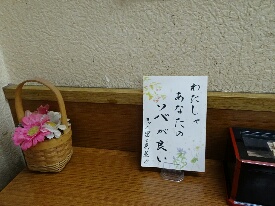 わたしゃ
あなたの
ソバが良い